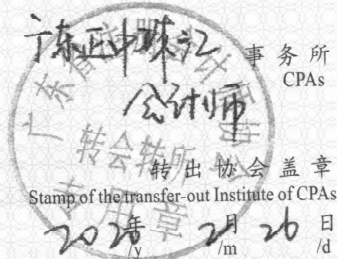 广东正中珠江 事务所
CPAs
会计师
转会转所
转出协会盖章
Stamp of the transfer-out Institute of CPAs
专用章
年 2月 26日
/y /m /d